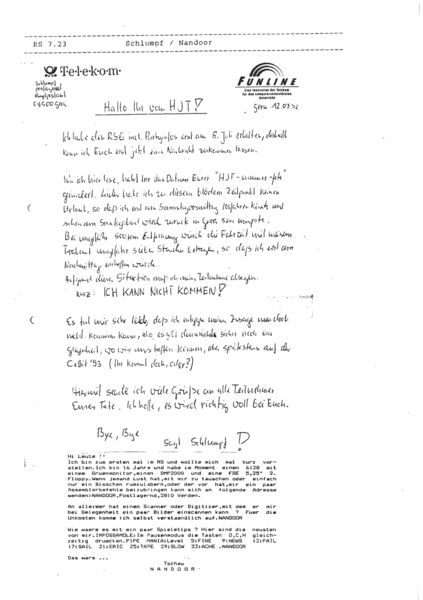 RS 7.23 Schlumpf / Nandoor
Telekom
FUNLINE
Schlumpf
postlagernd
Hauptpostamt
O-6500 Gera
Gera, 12.07.92
Hallo Ihr vom HJT!
Ich habe den RSG incl. Partyinfos erst am 8. Juli erhalten, deshalb
kann ich Euch erst jetzt eine Nachricht zukommen lassen.
Wie ich hier lese, habt Ihr das Datum Eurer "HJT-summer-fete"
geändert. Leider habe ich zu diesem blöden Zeitpunkt keinen
Urlaub, so daß ich erst am Samstagvormittag losfahren könnte und
schon am Sonntagabend wieder zurück in Gera sein müsste.
Bei ungefähr Entfernung würde die Fahrzeit mit meinem
Trabant ungefähr sieben Stunden betragen, so daß ich erst am
Nachmittag eintreffen würde.
Aufgrund dieser Situation muß ich meine Teilnahme absagen.
kurz: ICH KANN NICHT KOMMEN!
Es tut mir sehr leid, daß ich entgegen meiner Zusage nun doch
nicht kommen kann, aber es gibt demnächst sicher noch eine
Gelegenheit, wo wir uns treffen können, aber spätestens auf der
CeBit '93 (Ihr kommt doch, oder?)
Hiermit sende ich viele Grüße an alle Teilnehmer
Eurer Fete. Ich hoffe, es wird richtig voll bei Euch.
Bye, Bye
sagt Schlumpf
Hi Leute !!
Ich bin zum ersten mal im RS und wollte mich mal kurz vor-
stellen.Ich bin 16 Jahre und habe im Moment einen 6128 mit
einem Gruenmonitor,einen DMP2000 und eine FSE 5,25" 2.
Floppy.Wenn jemand Lust hat,mit mir zu tauschen oder einfach
nur ein Bisschen rumzulabern,oder der vor hat,mir ein paar
Assemblerbefehle beizubringen kann sich an folgende Adresse
wenden:NANDOOR,Postlagernd,2810 Verden.
An alle:Wer hat einen Scanner oder Digitizer,mit dem er mir
bei Gelegenheit ein paar Bilder einscannen kann ? Fuer die
Unkosten komme ich selbst verstaendlich auf.NANDOOR
Wie waere es mit ein paar Spieletips ? Hier sind die neusten
von mir.IMPOSSAMOLE:Im Pausenmodus die Tasten O,C,H gleich-
zeitig druecken.PIPE MANIA:Level 5:FINE 9:NEWS 12:FAIL
17:GAIL 21:ERIC 25:TAPE 29:SLOW 33:ACHE .NANDOOR
Das wars ...
Tschau
NANDOOR